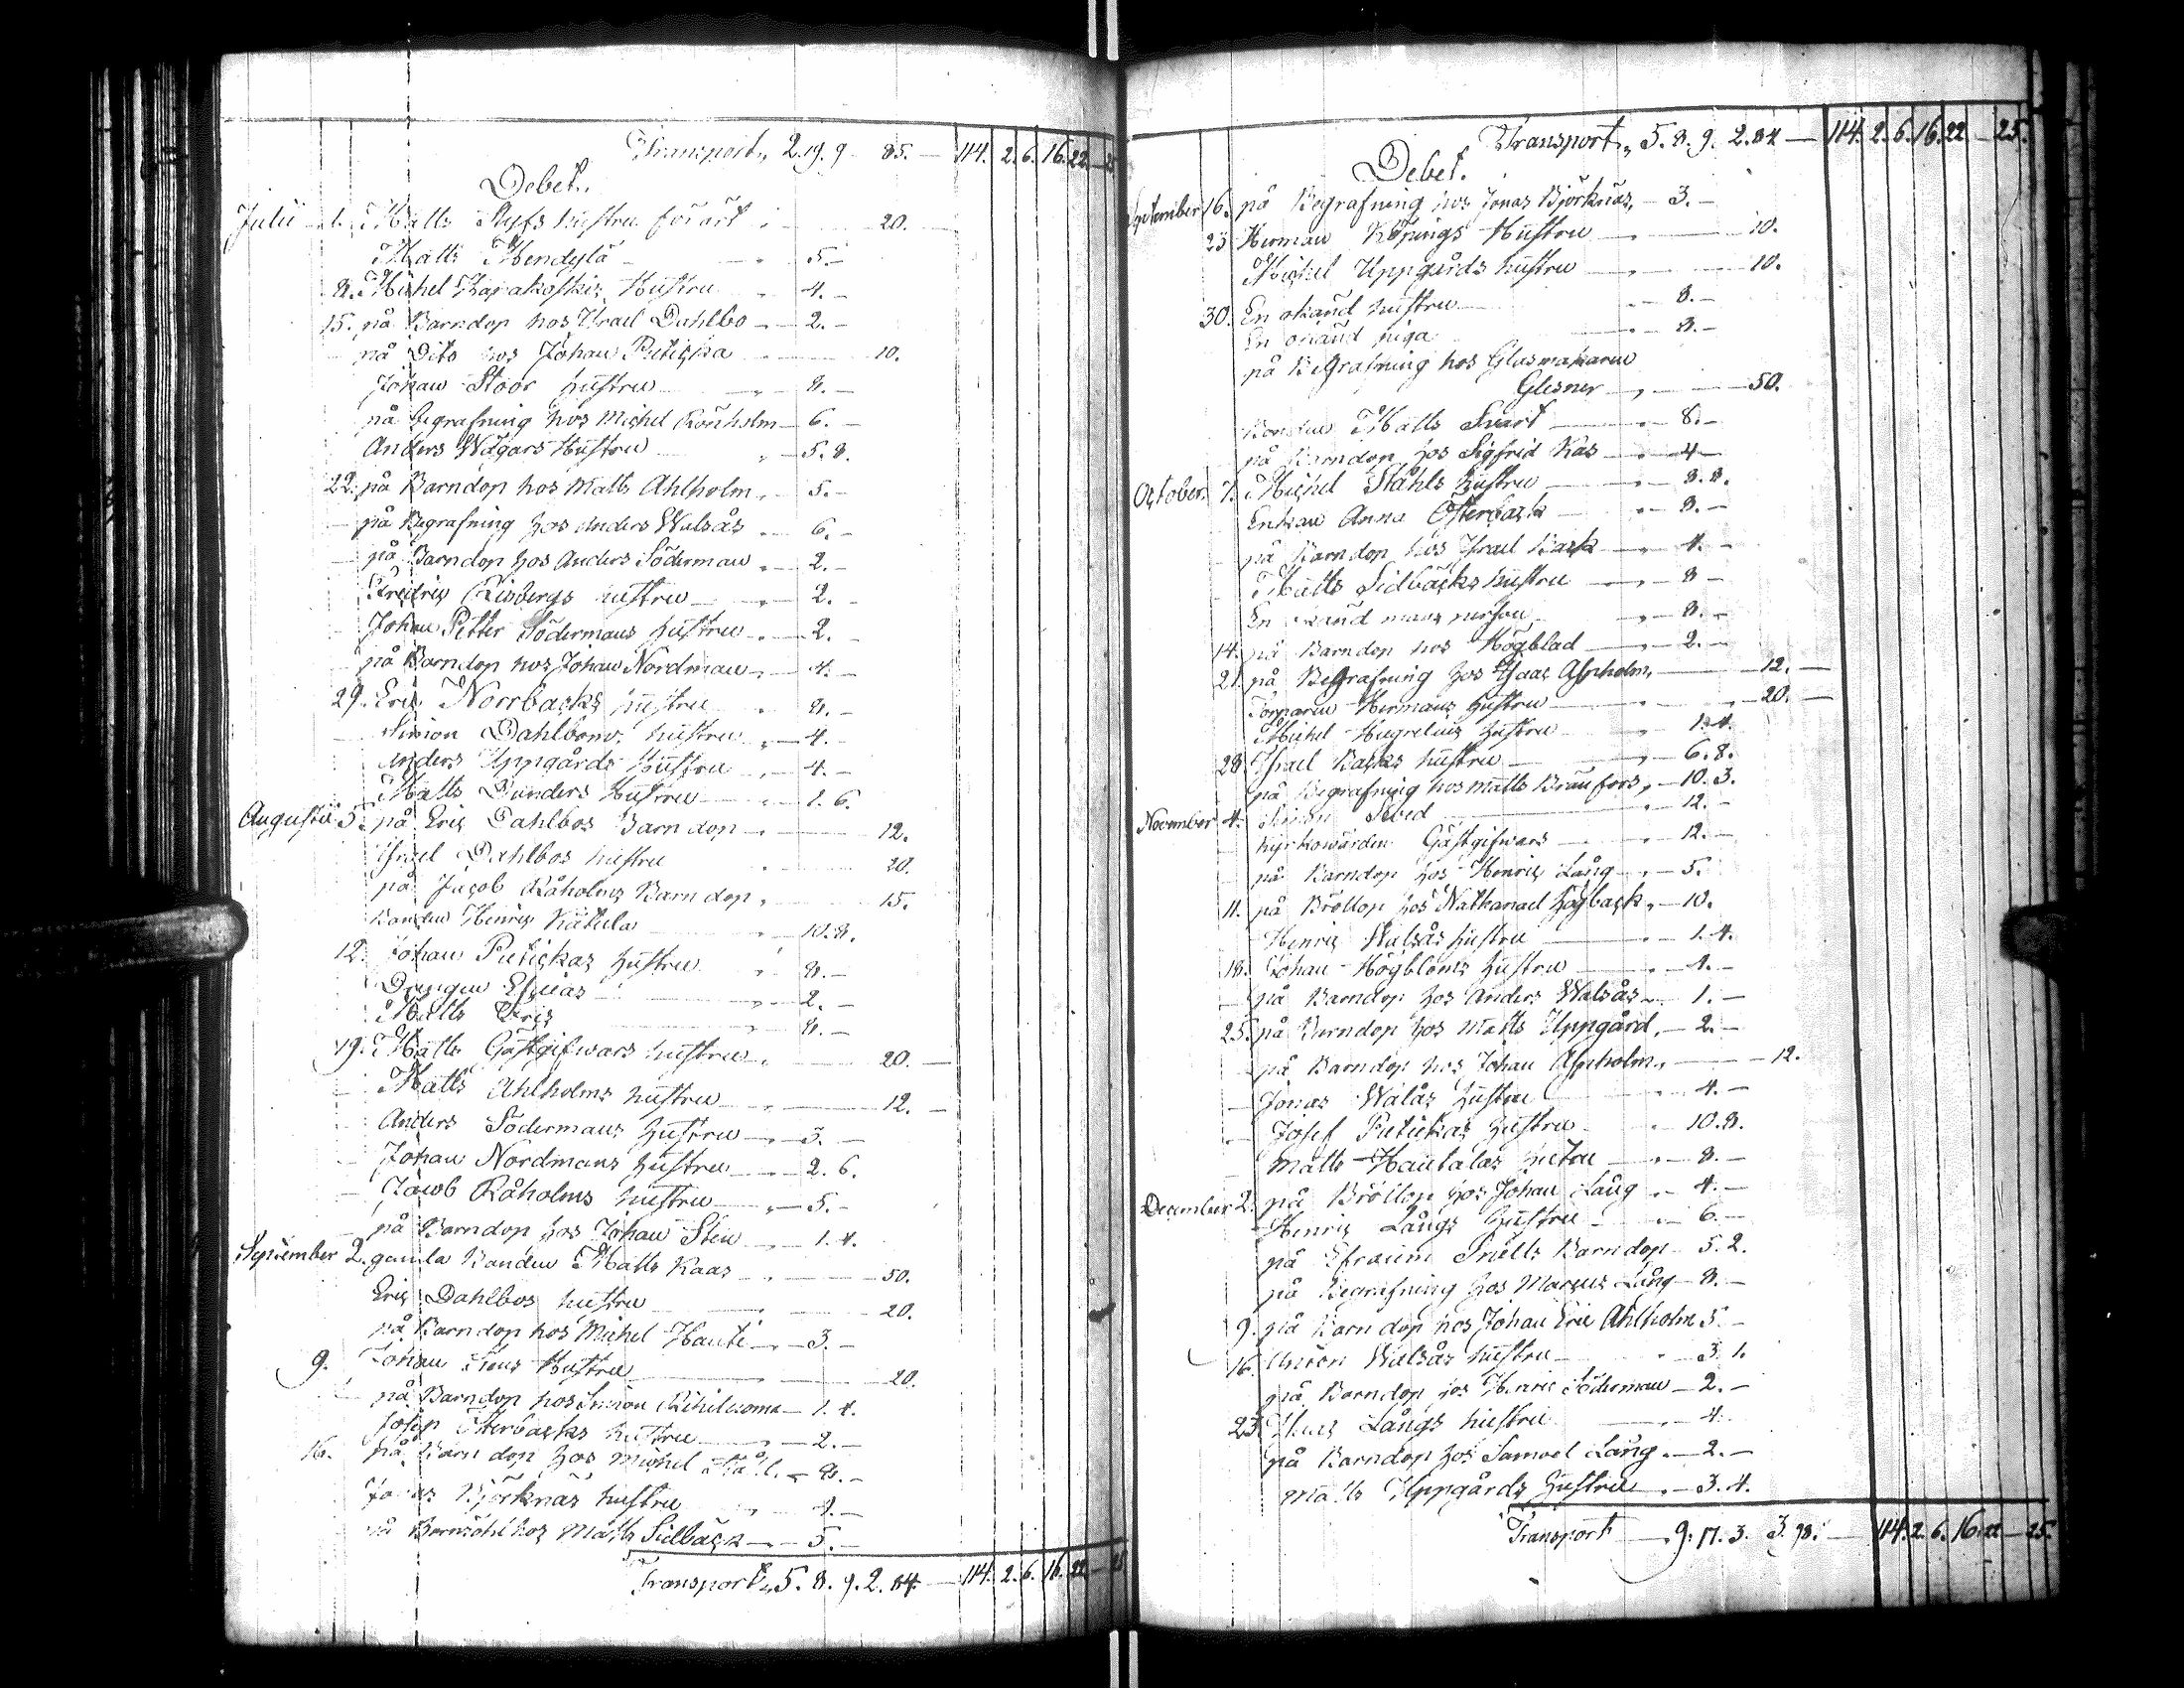 Transport „ 2.19.9 – 85. – 114. 2. 6. 16. 22 –
Debet.
Julii 1. Matts Slyfs hustru för ärt „ 20. –
Matts Mendylä – „ 5. –
8. Michel Harakoskis Hustru „ 4. –
15. på Barndop hos Israel Dahlbo – 2. –
på Dito hos Johan Pietiska 10.
Johan Stoor hustru „ 8. –
på Begrafning hos Michel Rönholm – 6. –
Anders Wägars Hustru „ – 5. 8.
22. på Barndop hos Matts Ahlholm „ 5. –
på Begrafning hos Anders Walsås „ 6. –
på Barndop hos Anders Söderman „ 2. –
Risbergs hustru – „ – 2. –
Johan Petter Södermans hustru „ – 2. –
på Barndop hos Johan Nordman „ 4. –
29. Eric Norrbacks hustru „ 8. –
Simon Dahlboms hustru „ – 4. –
Anders Uppgårds Hustru „ – 4. –
Matts Dunders Hustru „ – 1. 6.
Augustii 5. på Eric Dahlbos Barndop „ – 12.
Israel Dahlbos hustru „ 20.
på Jacob Råholms Barndop „ 15.
Bonden Henric Kätula „ – 10. 8.
12. Johan Pietickas hustru „ 8. –
Drengen Esaias – 2. –
Matts Eric „ 8. –
19. Matts Gästgifwars hustru „ 20. –
Matts Ahlholms hustru „ 12. –
Anders Södermans hustru „ – 3. –
Johan Nordmans hustru – 2. 6.
Jacob Råholms hustru „ – 5. –
på Barndop hos Johan Sten „ – 1. 4.
September 2. gamla Bonden Matts Kaas „ 50.
Eric Dahlbos hustru „ 20.
på Barndop hos Michel Hauti – 3. –
9. Johan Stens Hustru 20.
på Barndop hos Simon – 1. 4.
Josep Österbacks hustru „ – 2. –
16. på Barndop hos Michel Ståhl „ – 8. –
Jonas Björknäs hustru „ 4. –
på hos Matts Sidbäck – 5. –
Transport „ 5. 8. 9. 2. 84. – 114. 2. 6. 16. 22 –
Transport „ 5. 8. 9. 2. 84 – 114. 2. 6. 16. 22 – 25.
Debet.
September 16. på Begrafning hos Jonas Björknäs, – 3. –
23 Herman Köpings Hustru „ 10.
Michel Uppgårds hustru „ 10.
30. En okänd hustru „ – 8. –
En okänd piga „ – 8. –
på Begrafning hos Glasmakaren
Glesner „ – 50.
Bonden Matts Svart – 8. –
på Barndop hos Sigfrid Kas „ – 4 –
October. 7. Michel Ståhls hustru „ – 8. 8.
Enkan Anna Österback „ – 8. –
på Barndop hos Israel Back „ – 4. –
Matts Sidbäcks hustru „ 8 –
En okänd mans person „ – 8. –
14. på Barndop hos Högblad „ – 2. –
21. på Begrafning hos Isaac Aspholm, – 12. –
Torparen Hermans hustru „ – 20. –
Michel Hugrelius hustru „ 1. 4.
28. Israel Backs hustru „ – 6. 8.
på Begrafning hos Matts Brunfors „ – 10. 3.
November 4. Simon Sebed – 12. –
kyrkowärden Gästgifwars „ – 12. –
på Barndop hos Henric Lång „ – 5.
11. på Bröllop hos Nathanael Högback „ – 10.
Henric Walsås hustru – „ – 1. 4.
18. Johan Högbloms hustru „ – 4. –
på Barndop hos Anders Walsås „ 1. –
25. på Barndop hos Matts Uppgård, – 2. –
på Barndop hos Johan Aspholm „ – 12.
Jonas Walås hustru „ – 4. –
Josef Pietickas hustru „ – 10. 8.
Matts Hautalas hustru „ – 8. –
December 2. på Bröllop hos Johan Lång „ – 4. –
Henric Långs hustru – „ – 6. –
på Efraim Snälls Barndop – 5. 2.
på Begrafning hos Marcus Lång – 8. –
9. på Barndop hos Johan Eric Ahlholm 5. –
16. Walsås hustru – „ – 3. 1.
på Barndop hos Henric Söderman – 2. –
23. Långs hustru „ – 4.
på Barndop hos Samuel Lång „ – 2. –
Matts Uppgårds hustru „ – 3. 4.
Transport – 9. 17. 3. 3. 98. – 114. 2. 6. 16. 22 – 25.